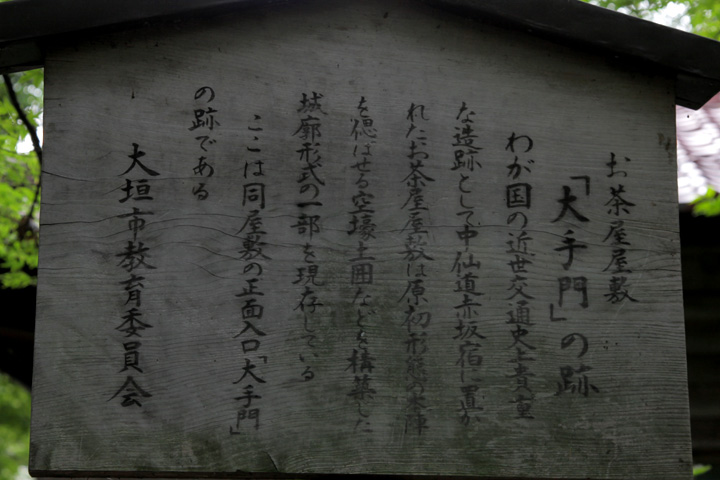 お茶屋屋敷
「大手門」の跡
わが国の近世交通史上貴重
な遺跡として中仙道赤坂宿に置か
れたお茶屋屋敷は原初形態の
を偲ばせる空壕土囲などを構築した
城廓形式の一部を現存している
ここは同屋敷の正面入口「大手門」
の跡である
大垣市教育委員会